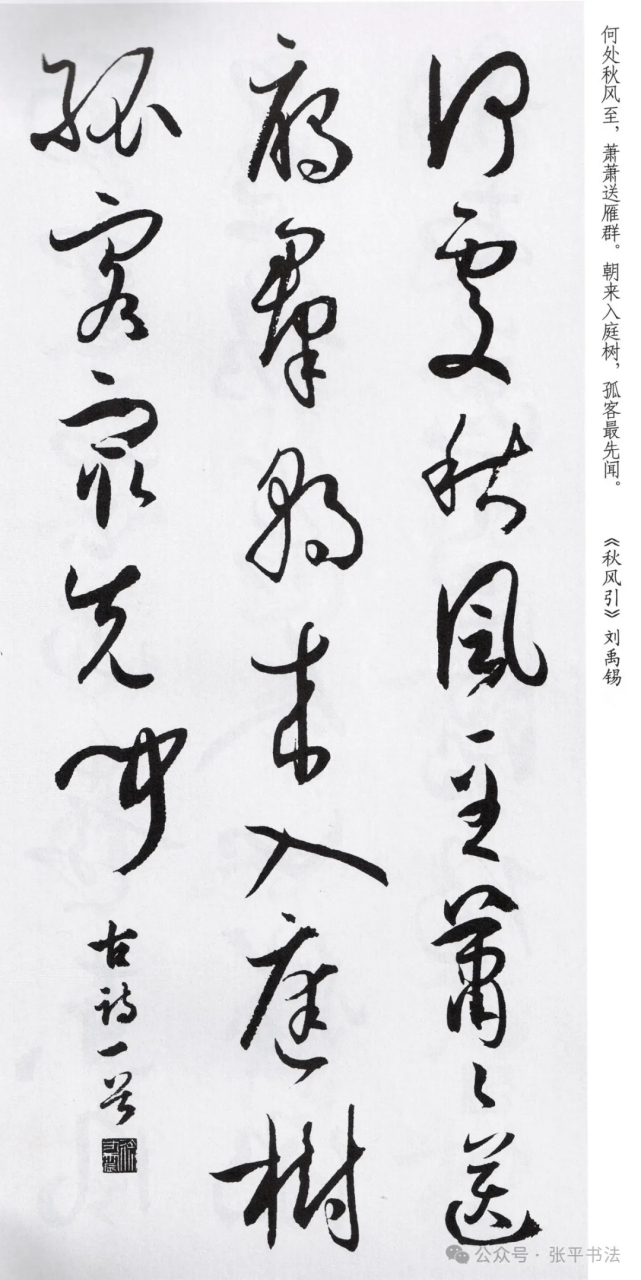 何处秋风至，萧萧送雁群。朝来入庭树，孤客最先闻。 《秋风引》刘禹锡
何處秋風至蕭々送
雁群朝来入庭樹
孤客最先聞
古詩一首
公众号·张平书法